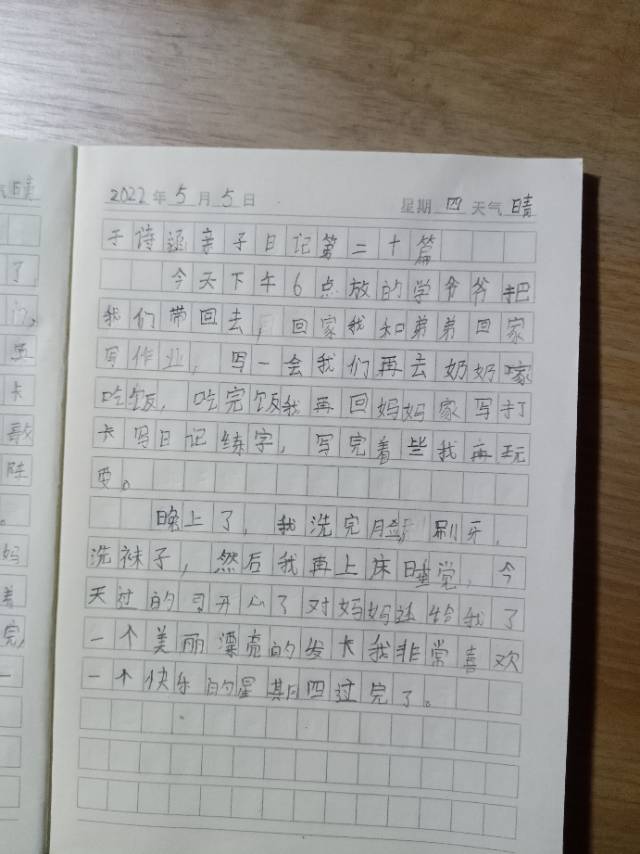 气晴
2022年5月5日 星期四天气晴
于诗涵亲子日记第二十篇
了,
今天下午6点放的学爷爷把
门,
我们带回去,回家我和弟弟回家
写作业,写一会我们再去奶奶家
卡
吃饭,吃完饭我再回妈妈家写打
歌
卡写日记练字,写完着些我再玩
阵
耍。
。
晚上了,我洗完脸刷牙,
妈
洗袜子,然后我再上床睡觉,今
着
天过的可开心了对妈妈还给我了
完,
一个美丽漂亮的发卡我非常喜欢
一
一个快乐的星期四过完了。